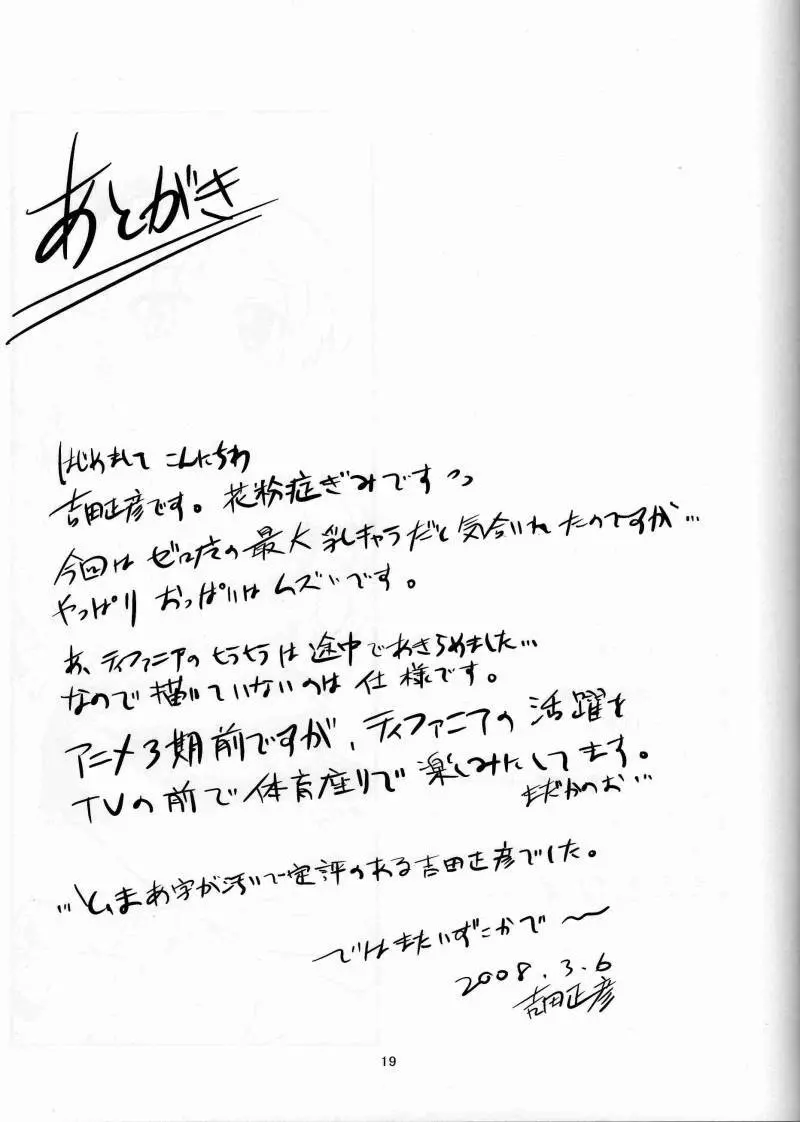 あとがき
はじめまして こんにちわ
吉田正彦です。花粉症ぎみです
今回は ゼロ魔の最大乳キャラだと気合いれたのですが…
やっぱり おっぱいは ムズいです。
あ、ティファニアの ヒラヒラは 途中であきらめました…
なので描いていないのは 仕様です。
アニメ3期前ですが、ティファニアの 活躍を
TVの前で体育座りで 楽しみにしてます。
まだかのぉ…
…と、まあ字が汚いで定評のある吉田正彦でした。
ではまたいずこかで〜
2008.3.6
吉田正彦
19